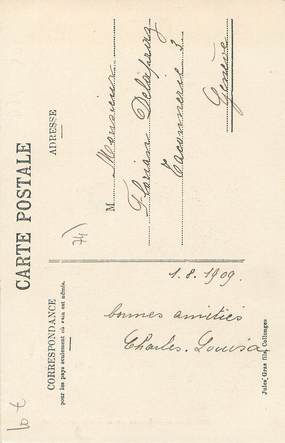 CARTE POSTALE
CORRESPONDANCE
pour les pays seulement où son est admis.
ADRESSE
M Monsieur
Florian Delapraz
Taconnerie 3.
Genève
74)
1.8.1909.
bonnes amitiés
Charles. Louisa
Jules Gras fils, Collonges